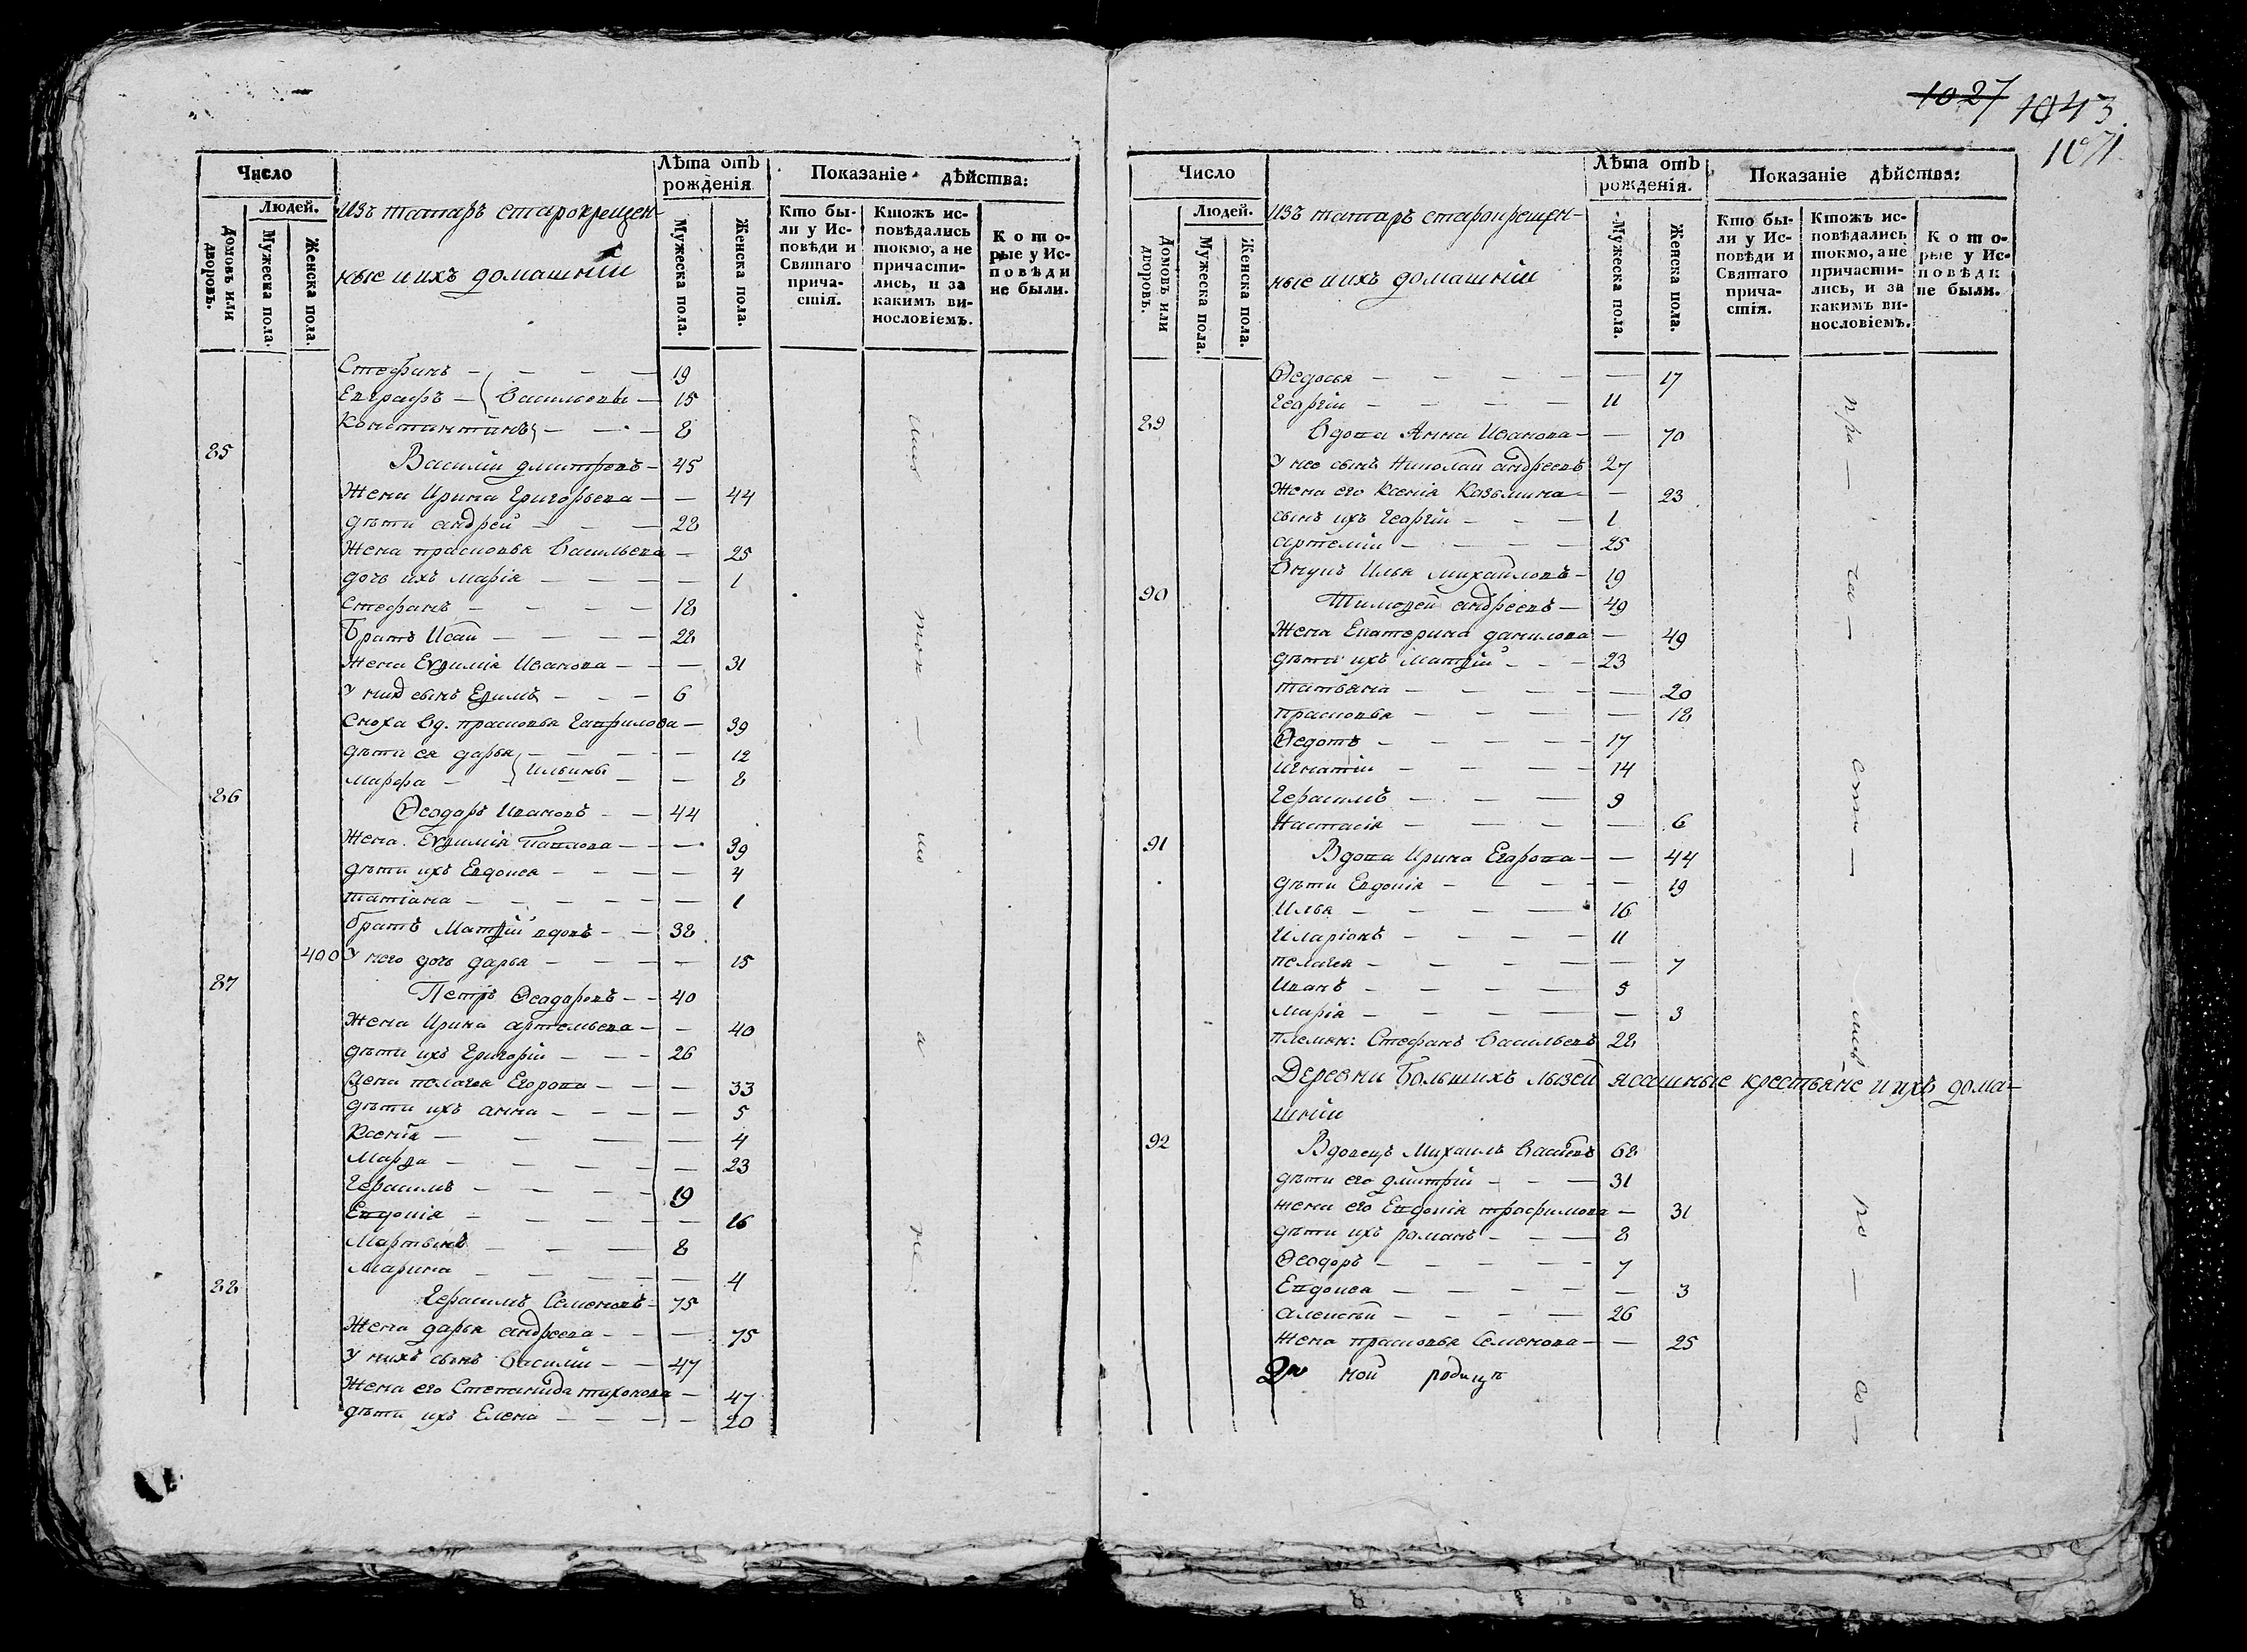 1027 1043
1071
Число
Людей.
Домовъ или дворовъ.
Мужеска пола.
Женска пола.
Изъ татаръ старокрещен-
ные и ихъ домашнiи
Лѣта отъ рожденiя
Мужеска пола.
Женска пола.
Показанiе дѣйства:
Кто были у Исповѣди и Святаго причастiя.
Ктожъ исповѣдались токмо, а не причастились, и за какимъ винословiемъ.
Которые у Исповѣди не были.
Стефанъ — 19
Евграфъ — Васильевы — 15
Константинъ — 8
85 Василiй Дмитревъ — 45
Жена Ирина Григорьева — 44
дѣти андрей — 28
Жена прасковья Васильева — 25
дочь ихъ марiя — 1
Стефанъ — 18
Братъ Исай — 28
Жена Евѳимiя Иванова — 31
У них сынъ Еѳимъ — 6
Сноха вд. прасковья Гаврилова — 39
дѣти ея дарья — 12
марфа — Ильины — 8
86 Ѳеодоръ Ивановъ — 44
Жена Евѳимiя Павлова — 39
дѣти ихъ Евдокея — 4
татiана — 1
братъ Матѳiй вдовъ — 38
400 У него дочь дарья — 15
87 Петръ Ѳеодоровъ — 40
Жена Ирина артемьева — 40
дѣти ихъ Григорiй — 26
Жена пелагея Егорова — 33
дѣти ихъ анна — 5
Ксенiя — 4
Марѳа — 23
Герасимъ — 19
Евдокiя — 16
Мартынъ — 8
Марина — 4
88 Герасимъ Семеновъ — 75
Жена дарья андреева — 75
У нихъ сынъ Василiй — 47
Жена его Степанида тихонова — 47
дѣти ихъ Елена — 20
Число
Людей.
Домовъ или дворовъ.
Мужеска пола.
Женска пола.
Изъ татаръ старокрещен-
ные и ихъ домашнiи
Лѣта отъ рожденiя.
Мужеска пола.
Женска пола.
Показанiе дѣйства:
Кто были у Исповѣди и Святаго причастiя.
Ктожъ исповѣдались токмо, а не причастились, и за какимъ винословiемъ.
Которые у Исповѣди не были.
Ѳедосья — 17
Георгiй — 11
89 Вдова Анна Иванова — 70
У нее сынъ Николай андреевъ 27
Жена его Ксенiя Козьмина — 23
сынъ ихъ Георгiй — 1
артемiй — 25
Внукъ Илья михайловъ — 19
90 Тимоѳей андреевъ — 49
Жена Екатерина данилова — 49
дѣти ихъ Матѳiй — 23
татьяна — 20
прасковья — 18
Ѳедотъ — 17
Игнатiй — 14
Герасимъ — 9
Настасiя — 6
91 Вдова Ирина Егорова — 44
дѣти Евдокiя — 19
Илья — 16
Иларiонъ — 11
пелагея — 7
Иванъ — 5
Марiя — 3
племян: Стефанъ Васильевъ 28
Деревни Большихъ лызей ясашные крестьяне и ихъ дома-
шнiи
92 Вдовецъ Михаилъ Васильевъ 68
дѣти его дмитрiй — 31
жена его Евдокiя трофимова — 31
дѣти ихъ романъ — 8
Ѳеодоръ — 7
Евдокея — 3
алексѣй — 26
Жена прасковья Семенова — 25
при — ча — сти — лись по — со —